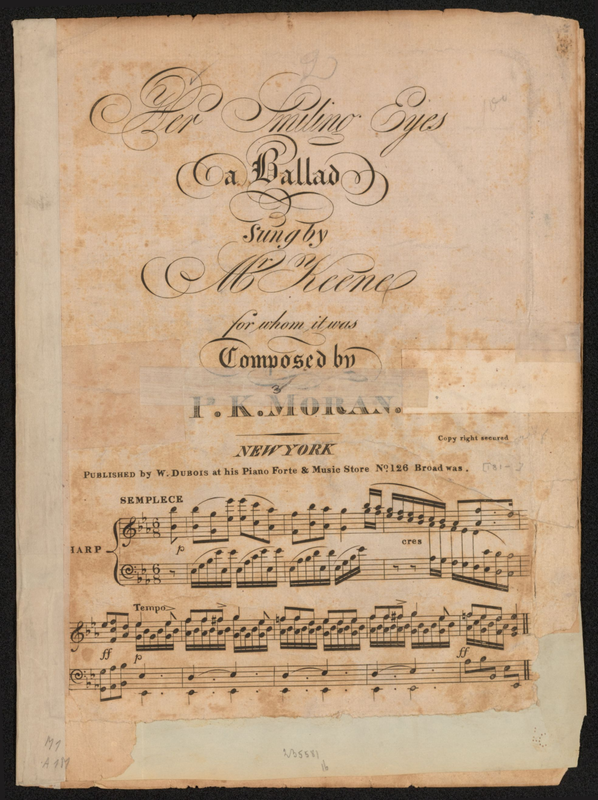 Her Smiling Eyes
a Ballad
Sung by
Mr Keene
for whom it was
Composed by
P. K. MORAN.
Copy right secured
NEW YORK
PUBLISHED by W. DUBOIS at his Piano Forte & Music Store No. 126 Broad was.
SEMPLECE
HARP
p
cres
Tempo
ff
p
ff
M1